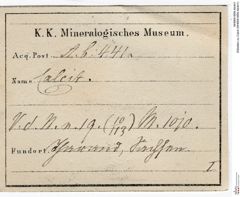 K. K. Mineralogisches Museum.
Acq. Post A. b. 441.
Name Calcit.
V. d. N. n. 19. (10/113) M. 1010.
Fundort. Tharand, Sachsen.
I